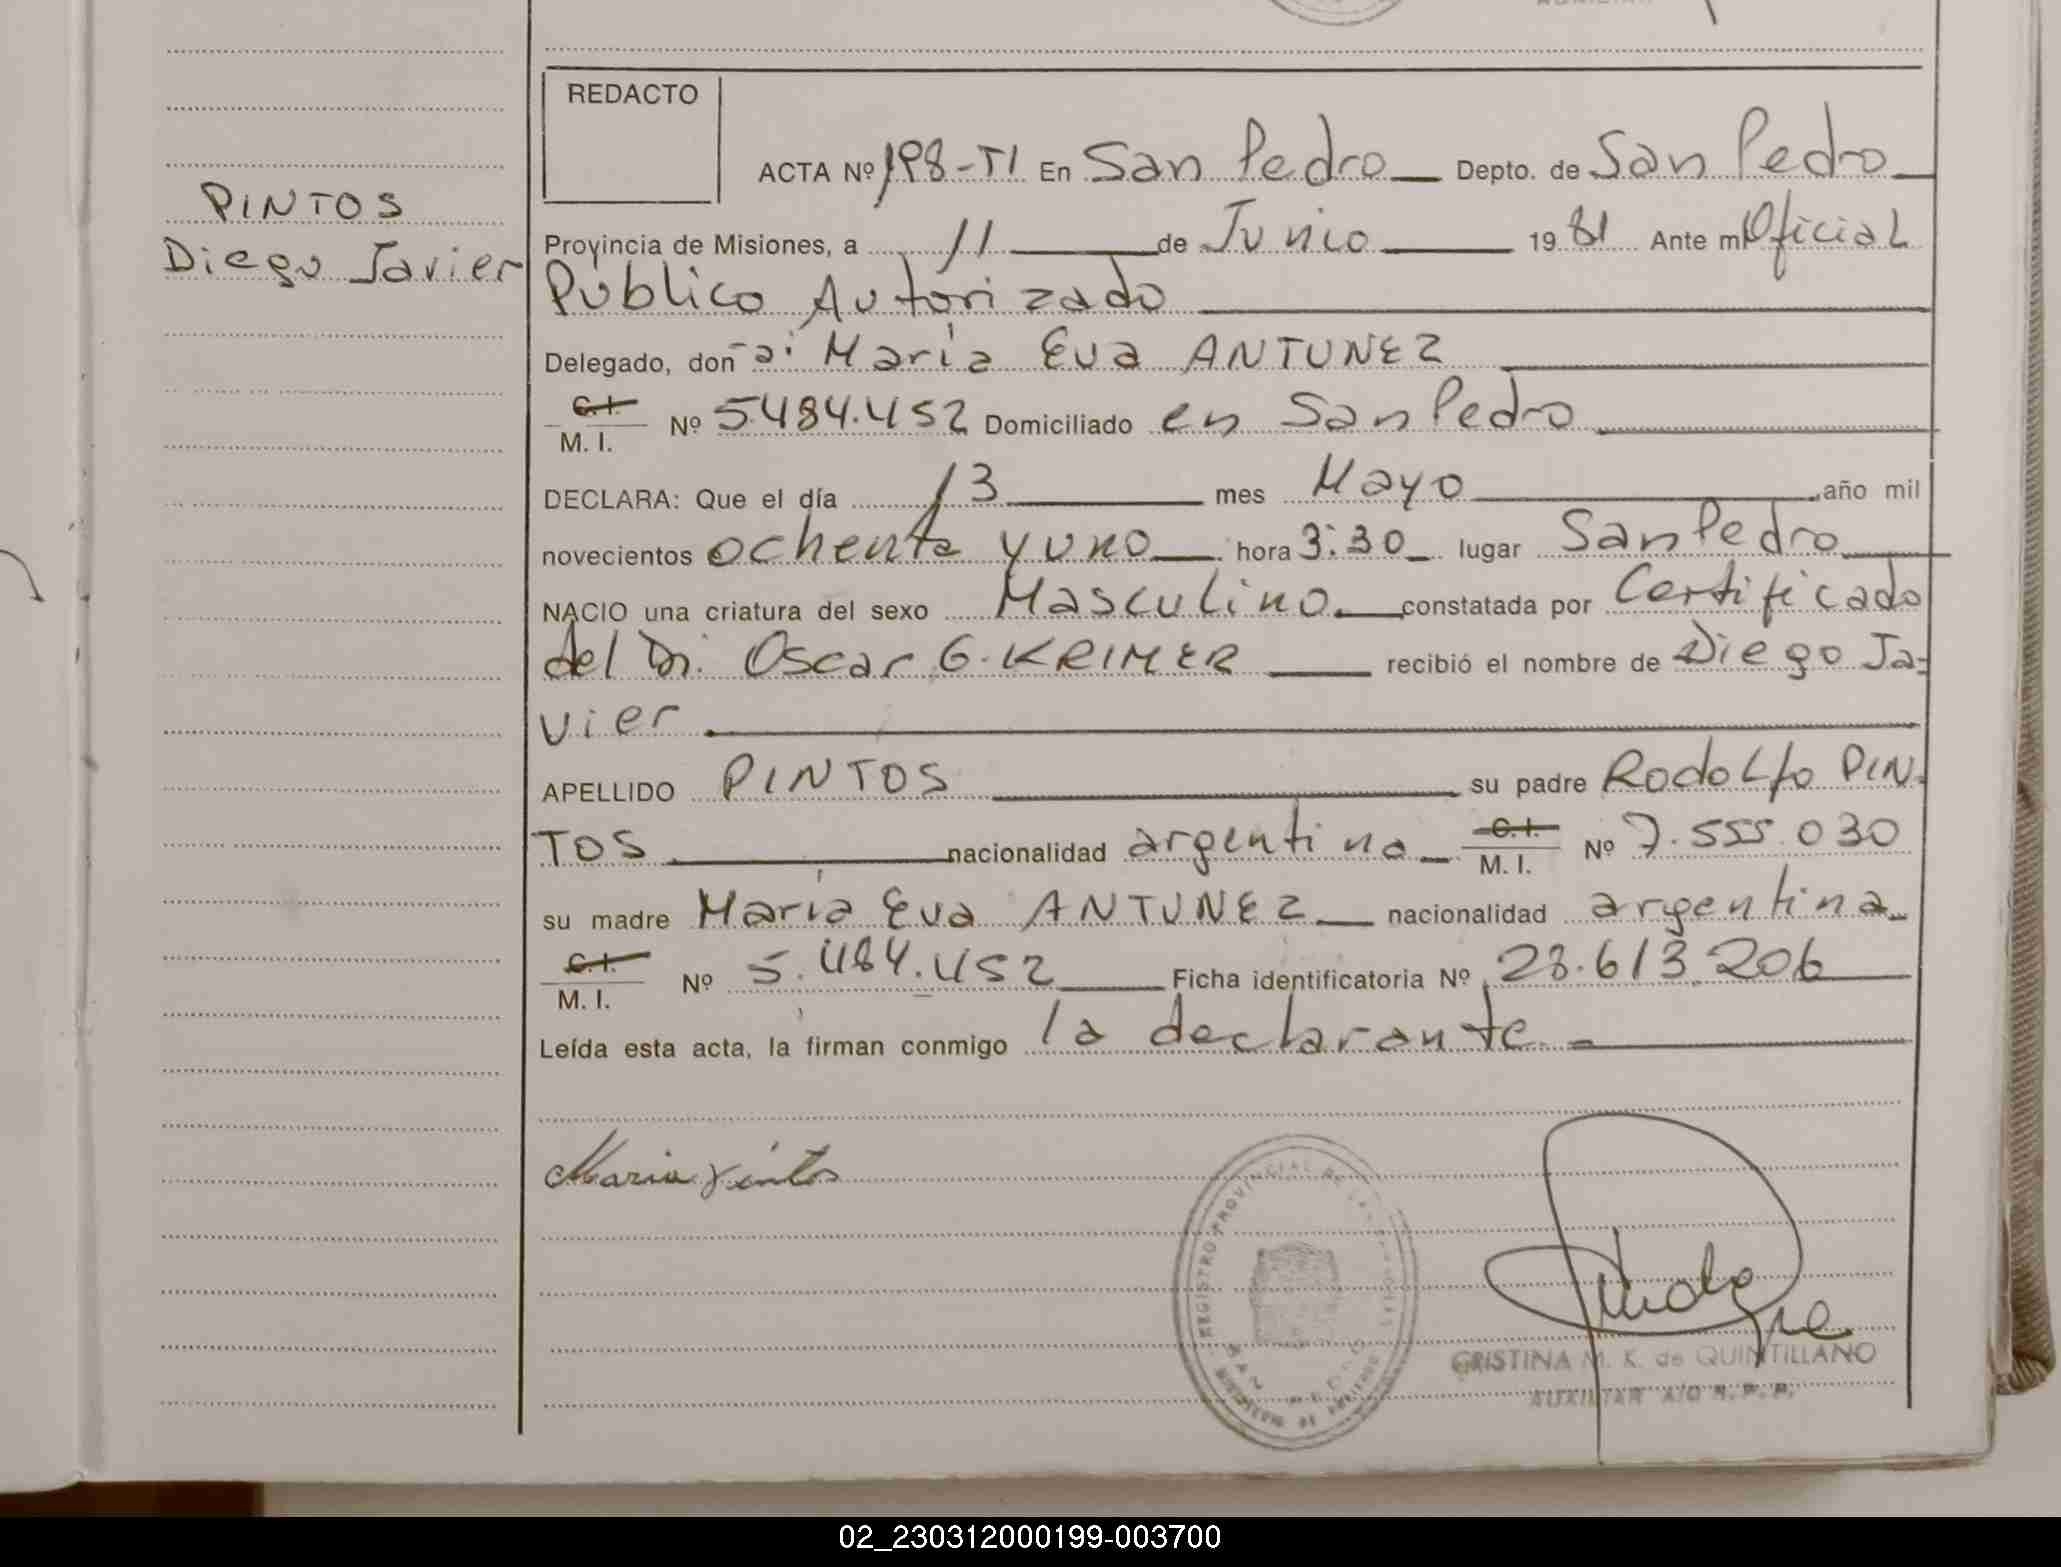 REDACTO
ACTA Nº 198-TI En San Pedro Depto. de San Pedro
PINTOS
Diego Javier
Provincia de Misiones, a 11 de Junio 19 81 Ante mí Oficial
Publico Autorizado
Delegado, don -a: María Eva ANTUNEZ
C.I.
M. I. Nº 5.484.452 Domiciliado en San Pedro
DECLARA: Que el día 13 mes Mayo año mil
novecientos ochenta y uno hora 3:30 lugar San Pedro
NACIO una criatura del sexo Masculino constatada por Certificado
del Dr. Oscar G. KRIMER recibió el nombre de Diego Ja-
vier
APELLIDO PINTOS su padre Rodolfo PIN-
TOS nacionalidad argentino C.I. M. I. Nº 7.555.030
su madre María Eva ANTUNEZ nacionalidad argentina
C.I.
M. I. Nº 5.484.452 Ficha identificatoria Nº 28.613.206
Leída esta acta, la firman conmigo la declarante.
Maria Pintos
REGISTRO PROVINCIAL DE LAS PERSONAS
SAN PEDRO
CRISTINA M. K. de QUINTILLANO
AUXILIAR A/C R. P. P.
02_230312000199-003700